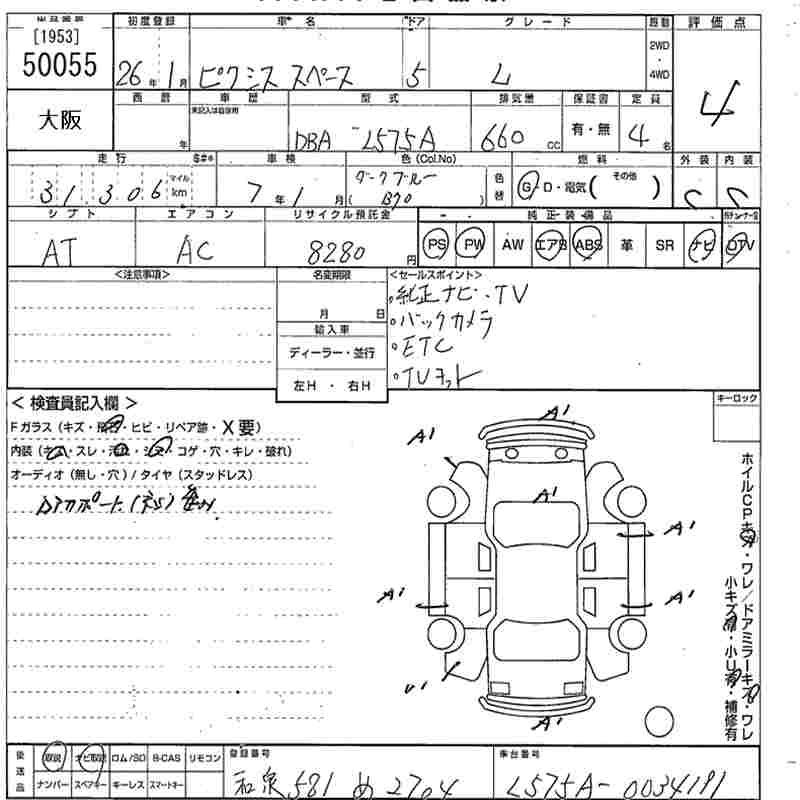 [1953]
50055
大阪
初度登録 車名 ドア グレード 駆動 評価点
26年1月 ピクシス スペース 5 L 2WD・4WD
4
西暦 車歴 型式 排気量 保証書 定員
年 未記入は自家用 DBA L575A 660 CC 有・無 4名
走行 車検 色(Col.No) 燃料 外装 内装
31,306 マイル km 7年1月 ダークブルー (B70) 色替 G・D・電気( その他 ) C C
シフト エアコン リサイクル預託金 純正装備品
AT AC 8280円 PS PW AW エアB ABS 革 SR ナビ TV
<注意事項> 名変期限 <セールスポイント>
月 日
輸入車
ディーラー・並行
左H ・ 右H
。純正ナビ・TV
。バックカメラ
。ETC
。TVキット
< 検査員記入欄 > キーロック
Fガラス(キズ・飛石・ヒビ・リペア跡・X要)
内装(キズ・スレ・汚れ・シミ・コゲ・穴・キレ・破れ)
オーディオ(無し・穴)/タイヤ(スタッドレス)
A1
A1
A1
A1
A1
A1
A1
U1
A1
ホイルCPキズ・ワレ/ドアミラーキズ・ワレ
小キズ有・小U有・補修有
後送品 取説 ナビ取説 ロム/SD B-CAS リモコン 登録番号 車台番号
ナンバー スペアキー キーレス スマートキー 和泉 581 め 2704 L575A-0034191